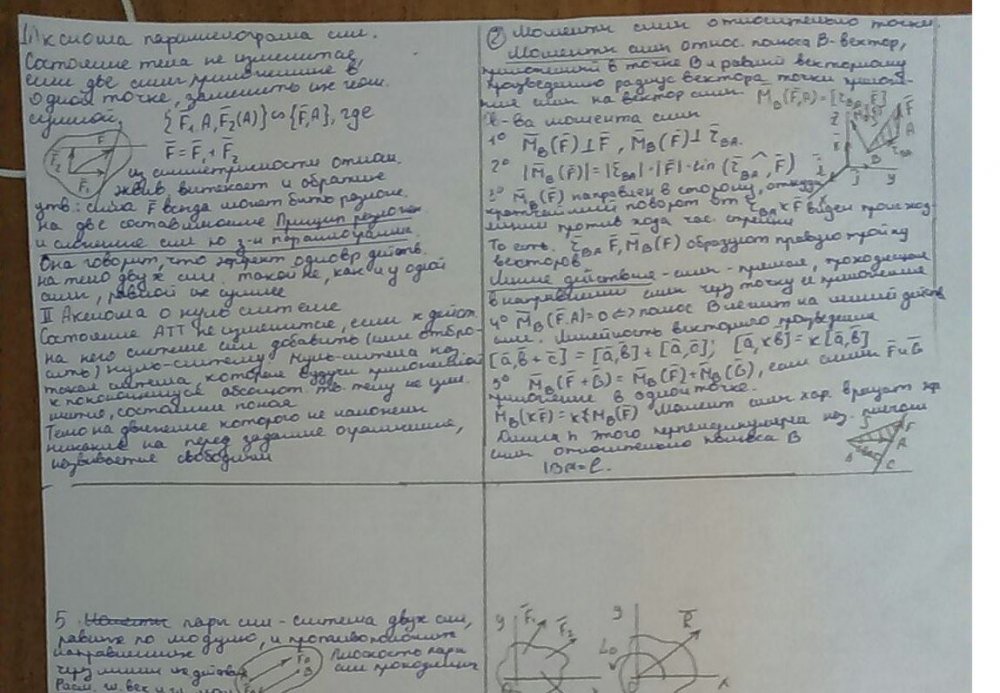 1) Аксиома параллелограма сил.
Состояние тела не изменится,
если две силы приложенные в
одной точке, заменить их геом.
суммой.
{F̄₁,A,F̄₂(A)}∾{F̄,A}, где
F̄=F̄₁+F̄₂
F̄₂ F̄ F̄₁
из симметричности отнош.
эквив. вытекает и обратное
утв: сила F̄ всегда может быть разлож.
на две составляющие Принцип разлож
и сложение сил по з-н параллограмма.
Она говорит, что эффект одновр действ.
на тело двух сил такой же, как и у одной
силы, равной их сумме
II Аксиома о нуль системе
Состояние АТТ не изменится, если к действ.
на него системе сил добавить (или отбро-
сить) нуль-систему Нуль-система наз
такая система, которая будучи приложенной
к покоящемуся абсолют. тв. телу не изм.
состояния покоя
Тело на движение которого не наложены
никакие на перед заданные ограничения,
называется свободным
2 Моменты силы относительно точки.
Моменты силы относ. полюса В-вектор,
приложенный в точке В и равный векторному
произведению радиус вектора точки прилож-
ния силы на вектор силы M̄_B(F̄,A)=[r̄_BA,F̄]
св-ва момента силы
1° M̄_B(F̄)⊥F̄, M̄_B(F̄)⊥r̄_BA.
2° |M̄_B(F̄)|=|r̄_BA|·|F̄|·sin(r̄_BA,^F̄)
3° M̄_B(F̄) направлен в сторону, откуда
кратчайший поворот от r̄_BA к F̄ виден происход
ящим против хода час. стрелки
То есть. r̄_BA F̄, M̄_B(F̄) образуют правую тройку
векторов
Линия действия-силы-прямая, проходящая
в направлении силы через точку её приложения
4° M̄_B(F̄,A)=0<=> полюс В лежит на линии действ
силы. Линейность векторного произведения
[ā,b̄+c̄]=[ā,b̄]+[ā,c̄]; [ā,кb̄]=к[ā,b̄]
5° M̄_B(F̄+Ḡ)=M̄_B(F̄)+M̄_B(Ḡ), если силы F̄ и Ḡ
приложение в одной точке.
M̄_B(кF̄)=к M̄_B(F̄) Момент силы хар. вращат эф
Длина h этого перпендикуляра наз. плечом
силы относительно полюса В
5 пары сил-система двух сил,
равных по модулю, и противоположно
направленных
чрез линии их действ
Плоскость пары
сил проходящая
y F̄₁ F̄₂
y L₀ R̄